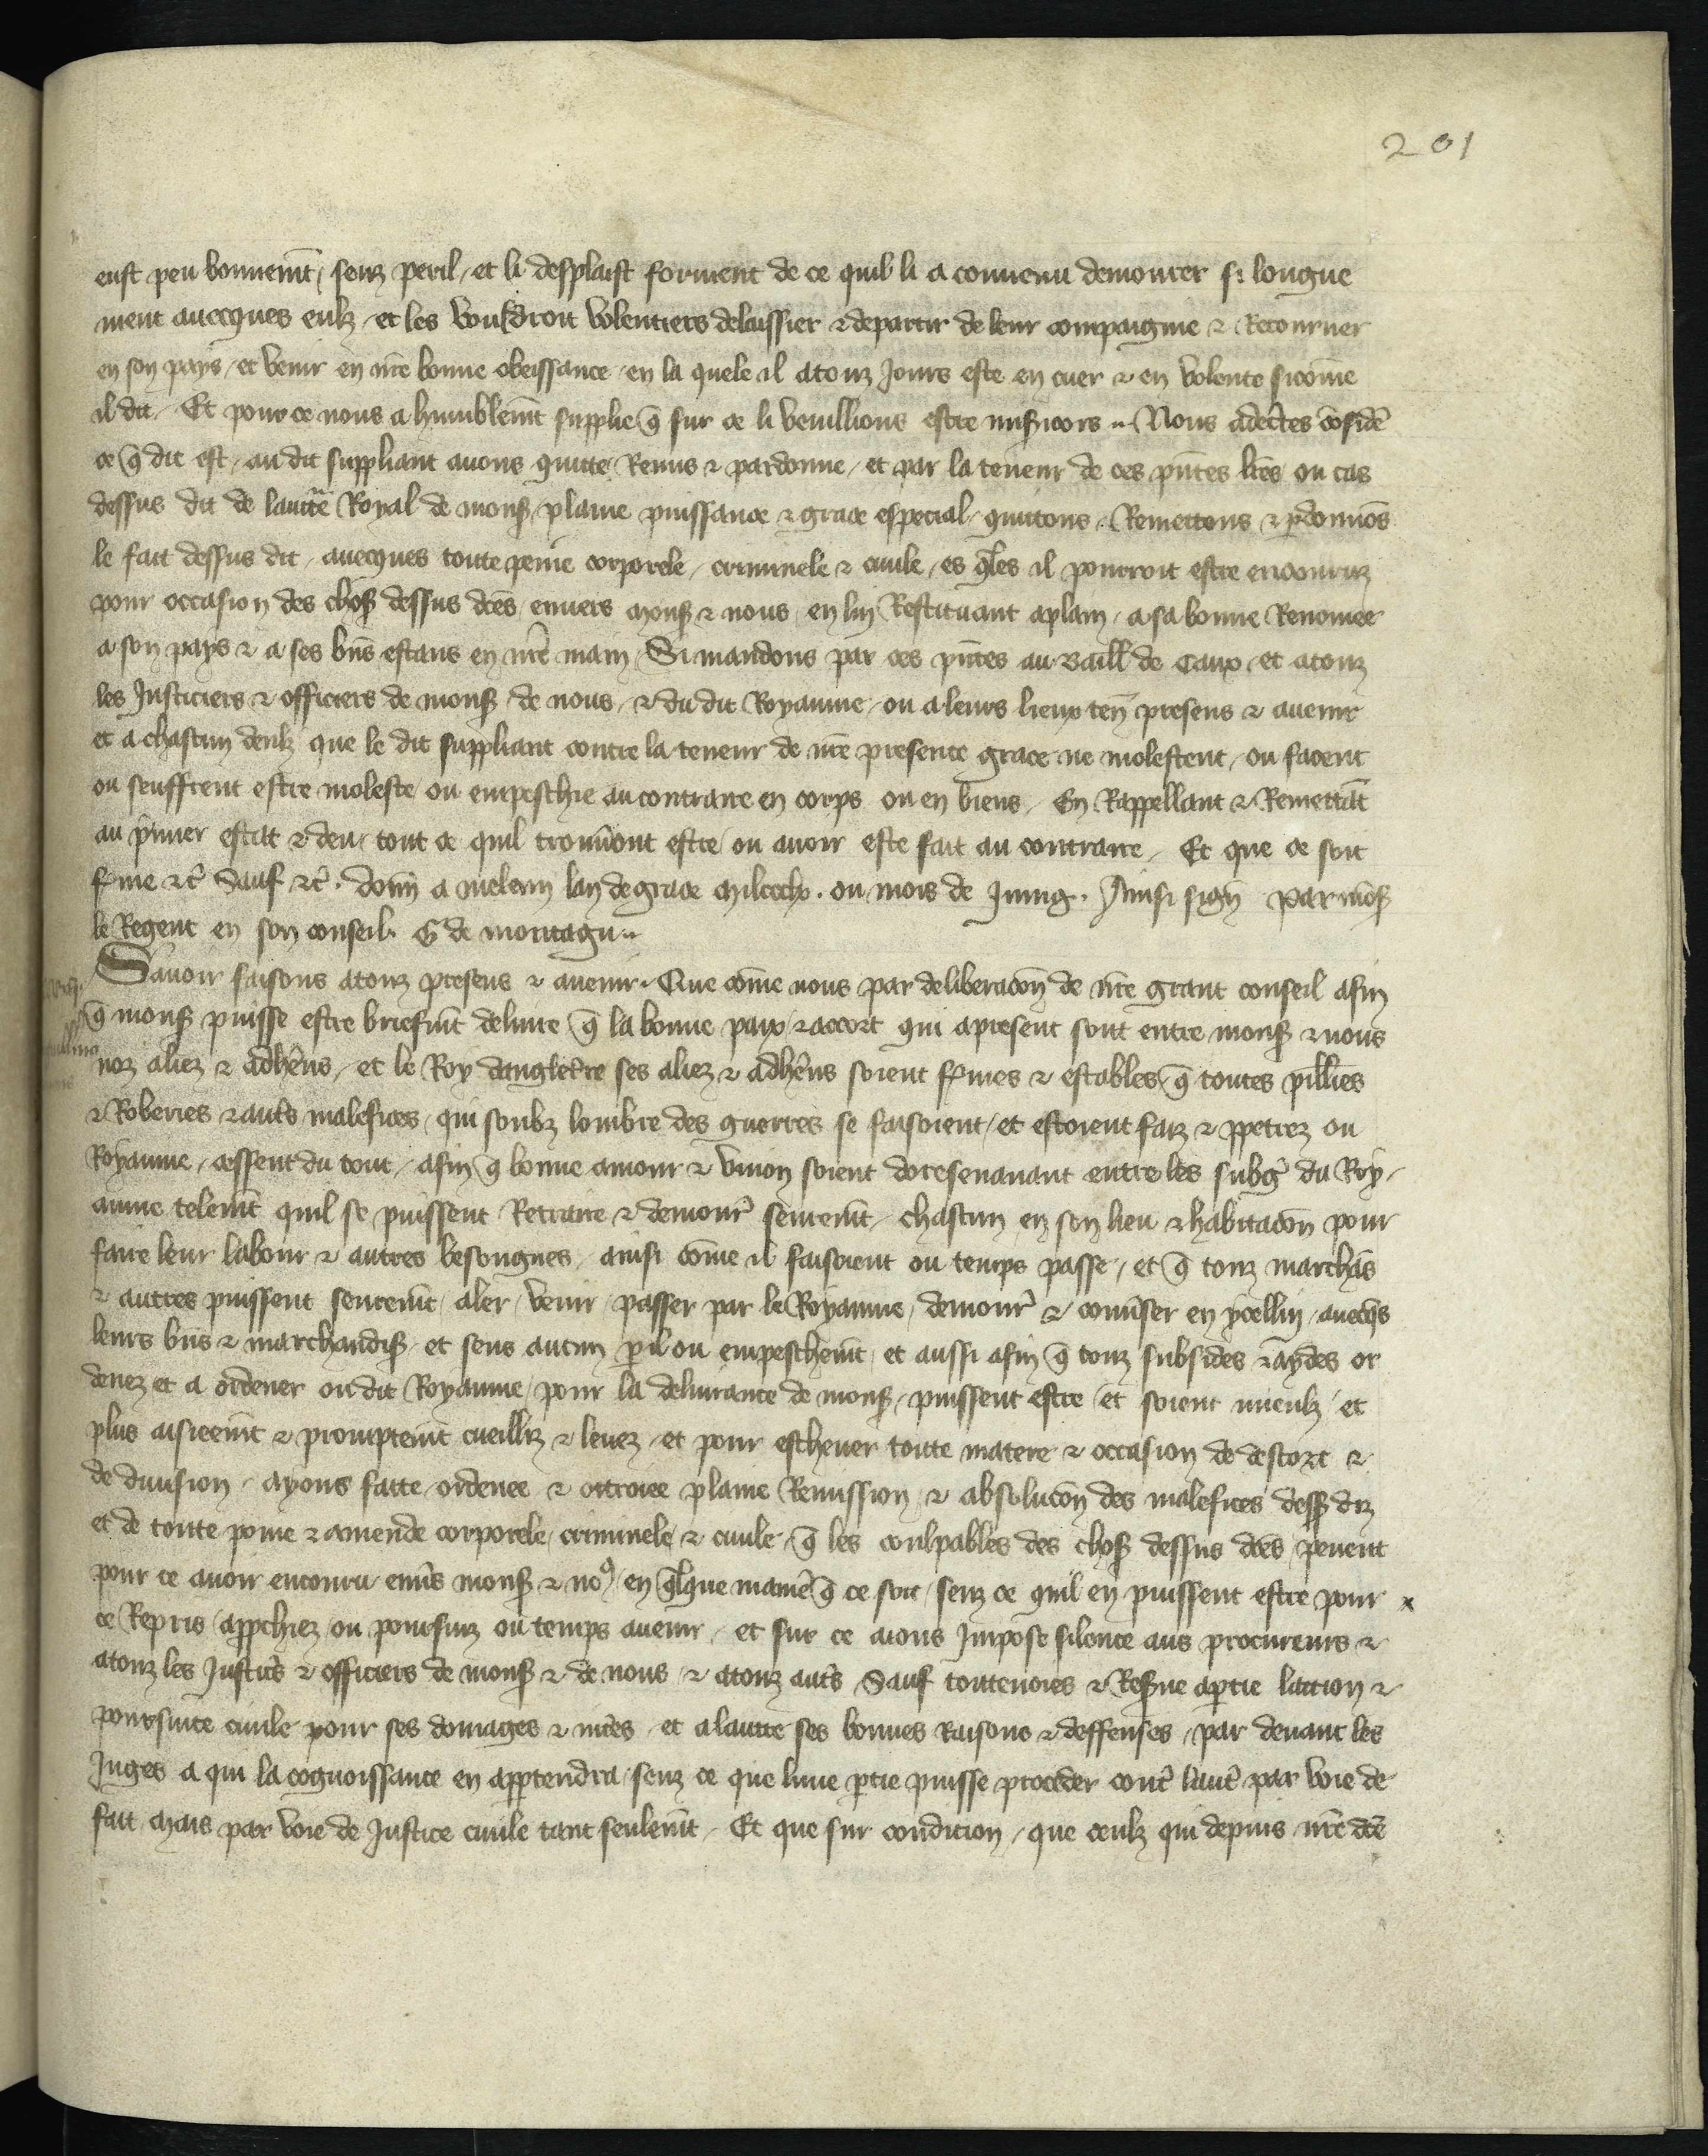 201
eust peu bonnemt, senz peril, et li desplaist forment de ce quil li a convenu demourer si longue
ment avecques eulz, et les vouldroit volentiers delaissier & departir de leur compaignie & Retourner
en son pays, et venir en nr̄e bonne obeissance, en la quele il a touz jours este en cuer & en volente sicōme
il dit. Et pour ce nous a humblemt supplie q̄ sur ce li veuillions estre miśicors .. Nous adecertes cōsidē
ce q̄ dit est, au dit suppliant avons quitte Remis & pardonne, et par la teneur de ces pn̄tes lr̄es ou cas
dessus dit de lauctē Royal de monsʳ, plaine puissance & grace especial, quittons, Remettons & ꝑdonnōs
le fait dessus dit, avecques toute peine corporele, criminele & civile, es q̄les il pourroit estre encouruz
pour occasion des choses dessus dc̄es, envers monsʳ & nous, en lui Restituant a plain, a sa bonne Renomee
a son pays & a ses bn̄s estans en nr̄e main, Si mandons par ces pn̄tes au Baillˡ de Caux, et a touz
les Justiciers & officiers de monsʳ de nous, & du dit Royaume, ou a leurs lieux teñ presens & avenir
et a chascun deulz que le dit suppliant contre la teneur de nr̄e presente grace ne molestent, ou facent
ou seuffrent estre moleste ou empeschie au contraire en corps ou en biens, En Rappellant & Remettāt
au p̄mier estat & deu, tout ce quil trouv̄ont estre ou avoir este fait au contraire, Et que ce soit
f̄me &c̄ Sauf &c̄. donn̄ a meleun lan de grace mil ccclx. ou mois de Juing. Ainsi sign̄ Par monsʳ
le Regent en son conseil. G de montagu ..
Savoir faisons a touz presens & avenir. Que cōme nous par deliberacōn de nr̄e grant conseil afin
q̄ monsʳ puisse estre briefmt delivre q̄ la bonne paix & accort qui a present sont entre monsʳ & nous
noz aliez & adhēns, et le Roy dangleterre ses aliez & adhēns soient f̄mes & estables, q̄ toutes pilliēs
& Roberies & autr̄s malefices, qui soubz lombre des guerres se faisoient, et estoient faiz & ꝑpetrez ou
Royaume, cessent du tout, afin q̄ bonne amour & union soient doresenavant entre les subgˢ du Roy-
aume telemt quil se puissent Retraire & demour̄ seuremt, chascun en son lieu & habitacōn pour
faire leur labour & autres besongnes, ainsi cōme il faisoient ou temps passe, et q̄ touz marchās
& autres puissent seuremt aler, venir, passer par le Royaume, demour̄ & convʳser en ycellui, avecq̄s
leurs bn̄s & marchandisˢ, et sens aucun ꝑil ou empeschemt, et aussi afin q̄ touz subsides & aydes or
denez et a ordener ou dit Royaume, pour la delivrance de monsʳ, puissent estre et soient mieulz et
plus aisieemt & promptemt cueilliz & levez, et pour eschever toute matere & occasion de descort &
de division, ayons faite ordenee & ottroiee plaine Remission & absolucōn des malefices dessˢ diz
et de toute poine & amende corporele, criminele & civile, q̄ les coulpables des choses dessus dc̄es pevent
pour ce avoir encouru env̄s monsʳ & noꝰ, en q̄lque maniē q̄ ce soit, senz ce quil en puissent estre pour
ce Repris, approchiez ou poursuiz ou temps avenir, et sur ce aions Impose silence aus procureurs &
a touz les Justicˢ & officiers de monsʳ & de nous & a touz autr̄s, Sauf toutevoies & Reśve a ꝑtie laction &
poursuite civile pour ses domages & intēs, et a lautre ses bonnes Raisons & deffenses, par devant les
Juges a qui la cognoissance en appartendra, senz ce que lune ꝑtie puisse proceder cont̄ laut̄ par voie de
fait, mais par voie de Justice civile tant seulemt, Et que sur condicion, que ceulz qui depuis nr̄e dc̄e